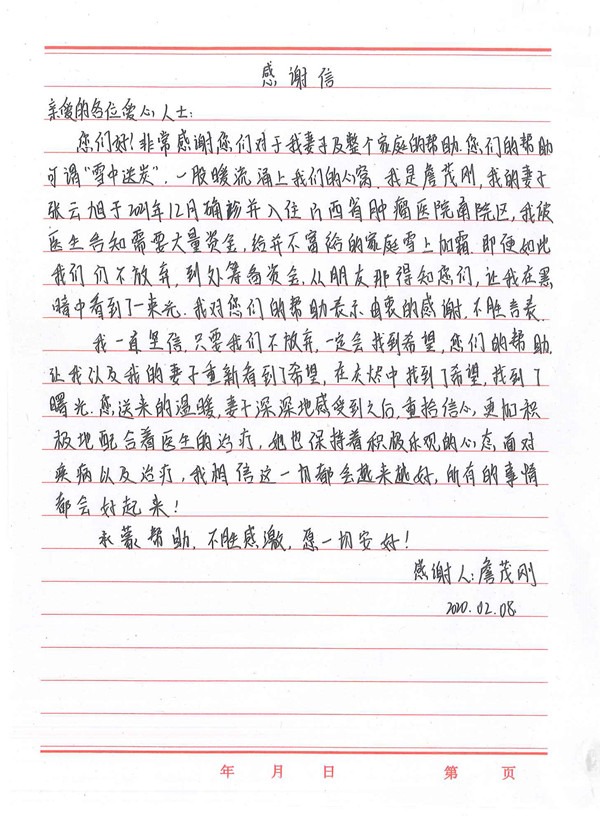 感谢信
亲爱的各位爱心人士：
您们好！非常感谢您们对于我妻子及整个家庭的帮助。您们的帮助
可谓“雪中送炭”，一股暖流涌上我们的心窝。我是詹茂刚，我的妻子
张云旭于2021年12月确诊并入住广西省肿瘤医院南院区，我被
医生告知需要大量资金，给并不富给的家庭雪上加霜。即便如此
我们们不放弃，到处筹备资金，从朋友那得知您们，让我在黑
暗中看到了一束光。我对您们的帮助表示由衷的感谢，不胜言表。
我一直坚信，只要我们不放弃，一定会找到希望，您们的帮助，
让我以及我的妻子重新看到了希望，在灰烬中找到了希望，找到了
曙光。您送来的温暖，妻子深深地感受到之后，重拾信心，更加积
极地配合着医生的治疗，她也保持着积极乐观的心态，面对
疾病以及治疗，我相信这一切都会越来越好，所有的事情
都会好起来！
承蒙帮助，不胜感激，愿一切安好！
感谢人：詹茂刚
2020.02.08
年 月 日 第 页